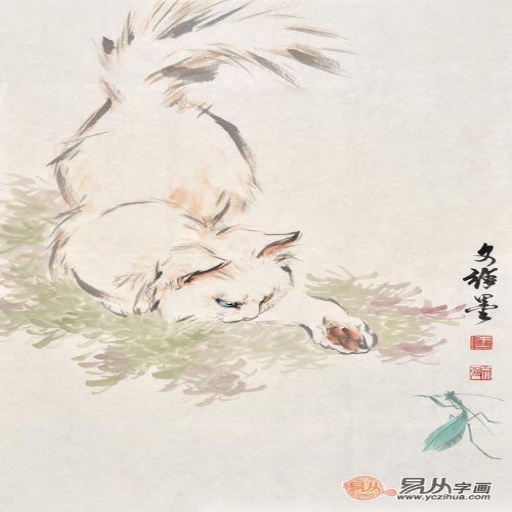 文强墨
易从字画
www.yczihua.com